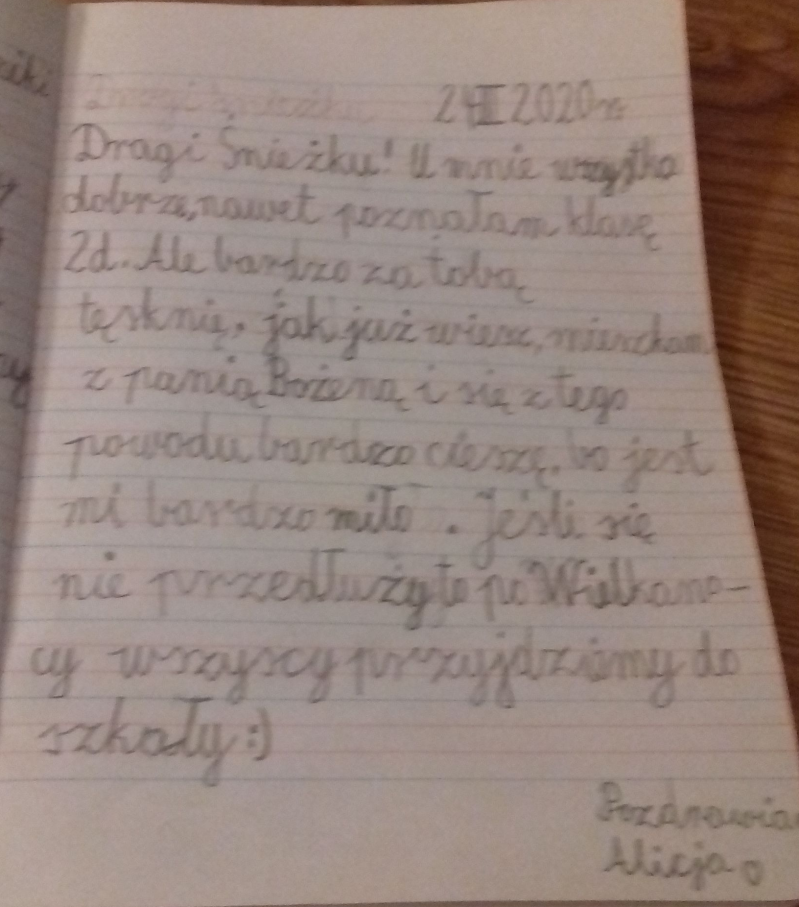 24 III 2020 r.
Dragi Śnieżku! U mnie wszystko
dobrze, nawet poznałam klasę
2d. Ale bardzo za tobą
tęsknię, jak już wiesz, mieszkam
z panią Bożeną i się z tego
powodu bardzo cieszę, bo jest
mi bardzo miło. Jeśli się
nie przedłuży to po Wielkano-
cy wszyscy przyjdziemy do
szkoły :)
Pozdrawia
Alicja